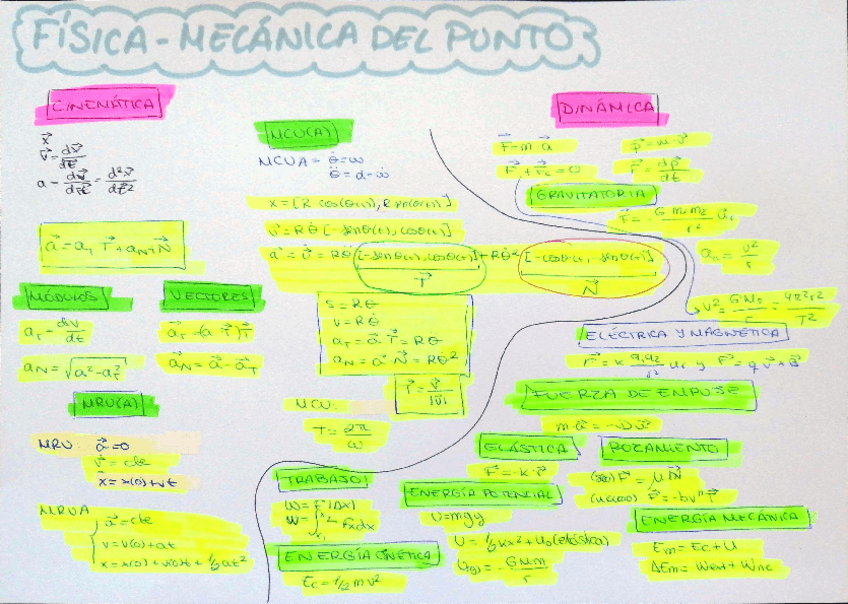 FÍSICA - MECÁNICA DEL PUNTO
CINEMÁTICA
x⃗
v⃗ = dx⃗/dt
a = dv⃗/dt = d²x⃗/dt²
a⃗ = a_T T⃗ + a_N N⃗
MÓDULOS
a_T = dv/dt
a_N = √(a² - a_T²)
VECTORES
a⃗_T = (a⃗ · T⃗)T⃗
a⃗_N = a⃗ - a⃗_T
MRU(A)
MRU: a⃗ = 0
v⃗ = cte
x⃗ = x(0) + vt
MRUA
a⃗ = cte
v = v(0) + at
x = x(0) + v(0)t + 1/2 at²
MCU(A)
MCUA = θ̇ = ω
θ̈ = α = ω̇
x⃗ = [R cos(θ(t)), R sen(θ(t))]
v⃗ = Rθ̇ [-senθ(t), cosθ(t)]
a⃗ = v̇ = Rθ̈ [-senθ(t), cosθ(t)] + Rθ̇² [-cosθ(t), -senθ(t)]
T⃗ N⃗
s = Rθ
v = Rθ̇
a_T = a⃗ · T⃗ = Rθ̈
a_N = a⃗ · N⃗ = Rθ̇²
T⃗ = v⃗/|v⃗|
MCU:
T = 2π/ω
TRABAJO
W = F(Δx)
W = ∫ F_x dx
ENERGÍA CINÉTICA
Ec = 1/2 mv²
DINÁMICA
F⃗ = m · a⃗
p⃗ = m · v⃗
F⃗ = dp⃗/dt
GRAVITATORIA
a_n = v²/r
ELÉCTRICA Y MAGNÉTICA
F⃗ = k q₁q₂/r² u_r y F⃗ = q v⃗ × B⃗
FUERZA DE EMPUJE
ELÁSTICA
F⃗ = -k · r⃗
ROZAMIENTO
ENERGÍA POTENCIAL
U = mgy
U = 1/2 kx² + U₀ (elástica)
U(g) = -GMm/r
ENERGÍA MECÁNICA
Em = Ec + U
ΔEm = Wext + Wnc